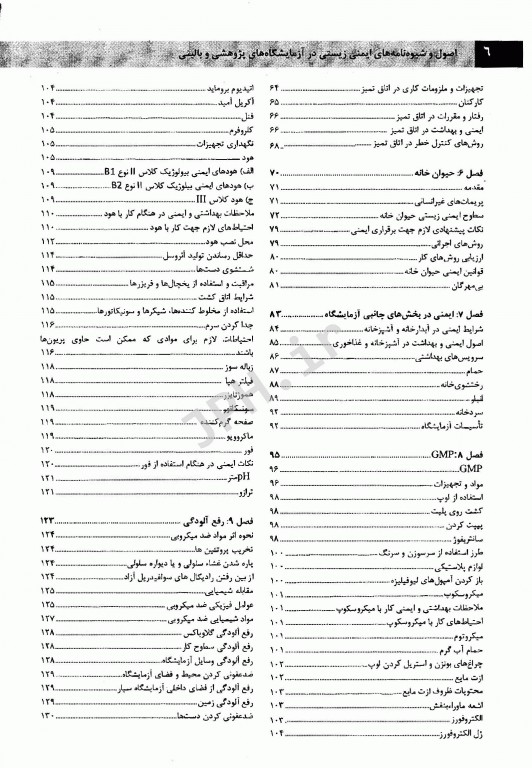 ۶ اصول و شیوه‌نامه‌های ایمنی زیستی در آزمایشگاه‌های پژوهشی و بالینی
تجهیزات و ملزومات کاری در اتاق تمیز ۶۴
کارکنان ۶۵
رفتار و مقررات در اتاق تمیز ۶۶
ایمنی و بهداشت در اتاق تمیز ۶۶
روش‌های کنترل خطر در اتاق تمیز ۶۸
فصل ۶: حیوان خانه ۷۰
مقدمه ۷۱
پریمات‌های غیرانسانی ۷۱
سطوح ایمنی زیستی حیوان خانه ۷۲
نکات پیشنهادی لازم جهت برقراری ایمنی ۷۹
روش‌های اجرائی ۷۹
ارزیابی روش‌های کار ۸۰
قوانین ایمنی حیوان خانه ۸۰
بی‌مهرگان ۸۱
فصل ۷: ایمنی در بخش‌های جانبی آزمایشگاه ۸۳
شرایط ایمنی در آبدارخانه و آشپزخانه ۸۴
اصول ایمنی و بهداشت در آشپزخانه و غذاخوری ۸۵
سرویس‌های بهداشتی ۸۶
حمام ۸۷
رختشوی‌خانه ۸۸
انبار ۸۹
سردخانه ۹۲
تأسیسات آزمایشگاه ۹۲
فصل ۸: GMP ۹۵
GMP ۹۶
مواد و تجهیزات ۹۶
استفاده از لوپ ۹۸
کشت روی پلیت ۹۸
پیپت کردن ۹۸
سانتریفوژ ۹۸
طرز استفاده از سرسوزن و سرنگ ۱۰۰
لوازم پلاستیکی ۱۰۰
باز کردن آمپول‌های لیوفیلیزه ۱۰۰
میکروسکوپ ۱۰۱
ملاحظات بهداشتی و ایمنی کار با میکروسکوپ ۱۰۱
احتیاط‌های کار با میکروسکوپ ۱۰۱
میکروتوم ۱۰۱
حمام آب گرم ۱۰۱
چراغ‌های بونزن و استریل کردن لوپ ۱۰۲
ازت مایع ۱۰۲
محتویات ظروف ازت مایع ۱۰۳
اشعه ماوراءبنفش ۱۰۳
الکتروفورز ۱۰۳
ژل الکتروفورز ۱۰۴
اتیدیوم بروماید ۱۰۴
آکریل آمید ۱۰۴
فنل ۱۰۴
کلروفرم ۱۰۵
نگهداری تجهیزات ۱۰۵
هود ۱۰۵
الف) هودهای ایمنی بیولوژیک کلاس II نوع B1 ۱۰۹
ب) هودهای ایمنی بیلوژیک کلاس II نوع B2 ۱۰۹
ج) هود کلاس III ۱۰۹
ملاحظات بهداشتی و ایمنی در هنگام کار با هود ۱۱۰
احتیاط‌های لازم جهت کار با هود ۱۱۰
محل نصب هود ۱۱۲
حداقل رساندن تولید آئروسل ۱۱۴
شستشوی دست‌ها ۱۱۴
مراقبت و استفاده از یخچال‌ها و فریزرها ۱۱۵
شرایط اتاق کشت ۱۱۵
استفاده از مخلوط کننده‌ها، شیکرها و سونیکاتورها ۱۱۵
جدا کردن سرم ۱۱۶
احتیاطات لازم برای موادی که ممکن است حاوی پریون‌ها
باشند ۱۱۶
زباله سوز ۱۱۸
فیلتر هپا ۱۱۸
هموژنایزر ۱۱۸
سونیکاتور ۱۱۹
صفحه گرم‌کننده ۱۱۹
ماکروویو ۱۱۹
فور ۱۲۰
نکات ایمنی در هنگام استفاده از فور ۱۲۰
pHمتر ۱۲۱
ترازو ۱۲۱
فصل ۹: رفع آلودگی ۱۲۳
نحوه اثر مواد ضد میکروبی ۱۲۴
تخریب پروتئین ها ۱۲۴
پاره شدن غشاء سلولی و یا دیواره سلولی ۱۲۴
از بین رفتن رادیکال های سولفیدریل آزاد ۱۲۴
مقابله شیمیایی ۱۲۵
عوامل فیزیکی ضد میکروبی ۱۲۵
مواد شیمیایی ضد میکروبی ۱۲۷
رفع آلودگی گلاوباکس ۱۲۸
رفع آلودگی سطوح کار ۱۲۸
رفع آلودگی وسایل آزمایشگاه ۱۲۸
ضدعفونی کردن محیط و فضای آزمایشگاه ۱۲۹
رفع آلودگی از فضای داخلی آزمایشگاه سیار ۱۲۹
رفع آلودگی زمین ۱۲۹
ضدعفونی کردن دست‌ها ۱۳۰